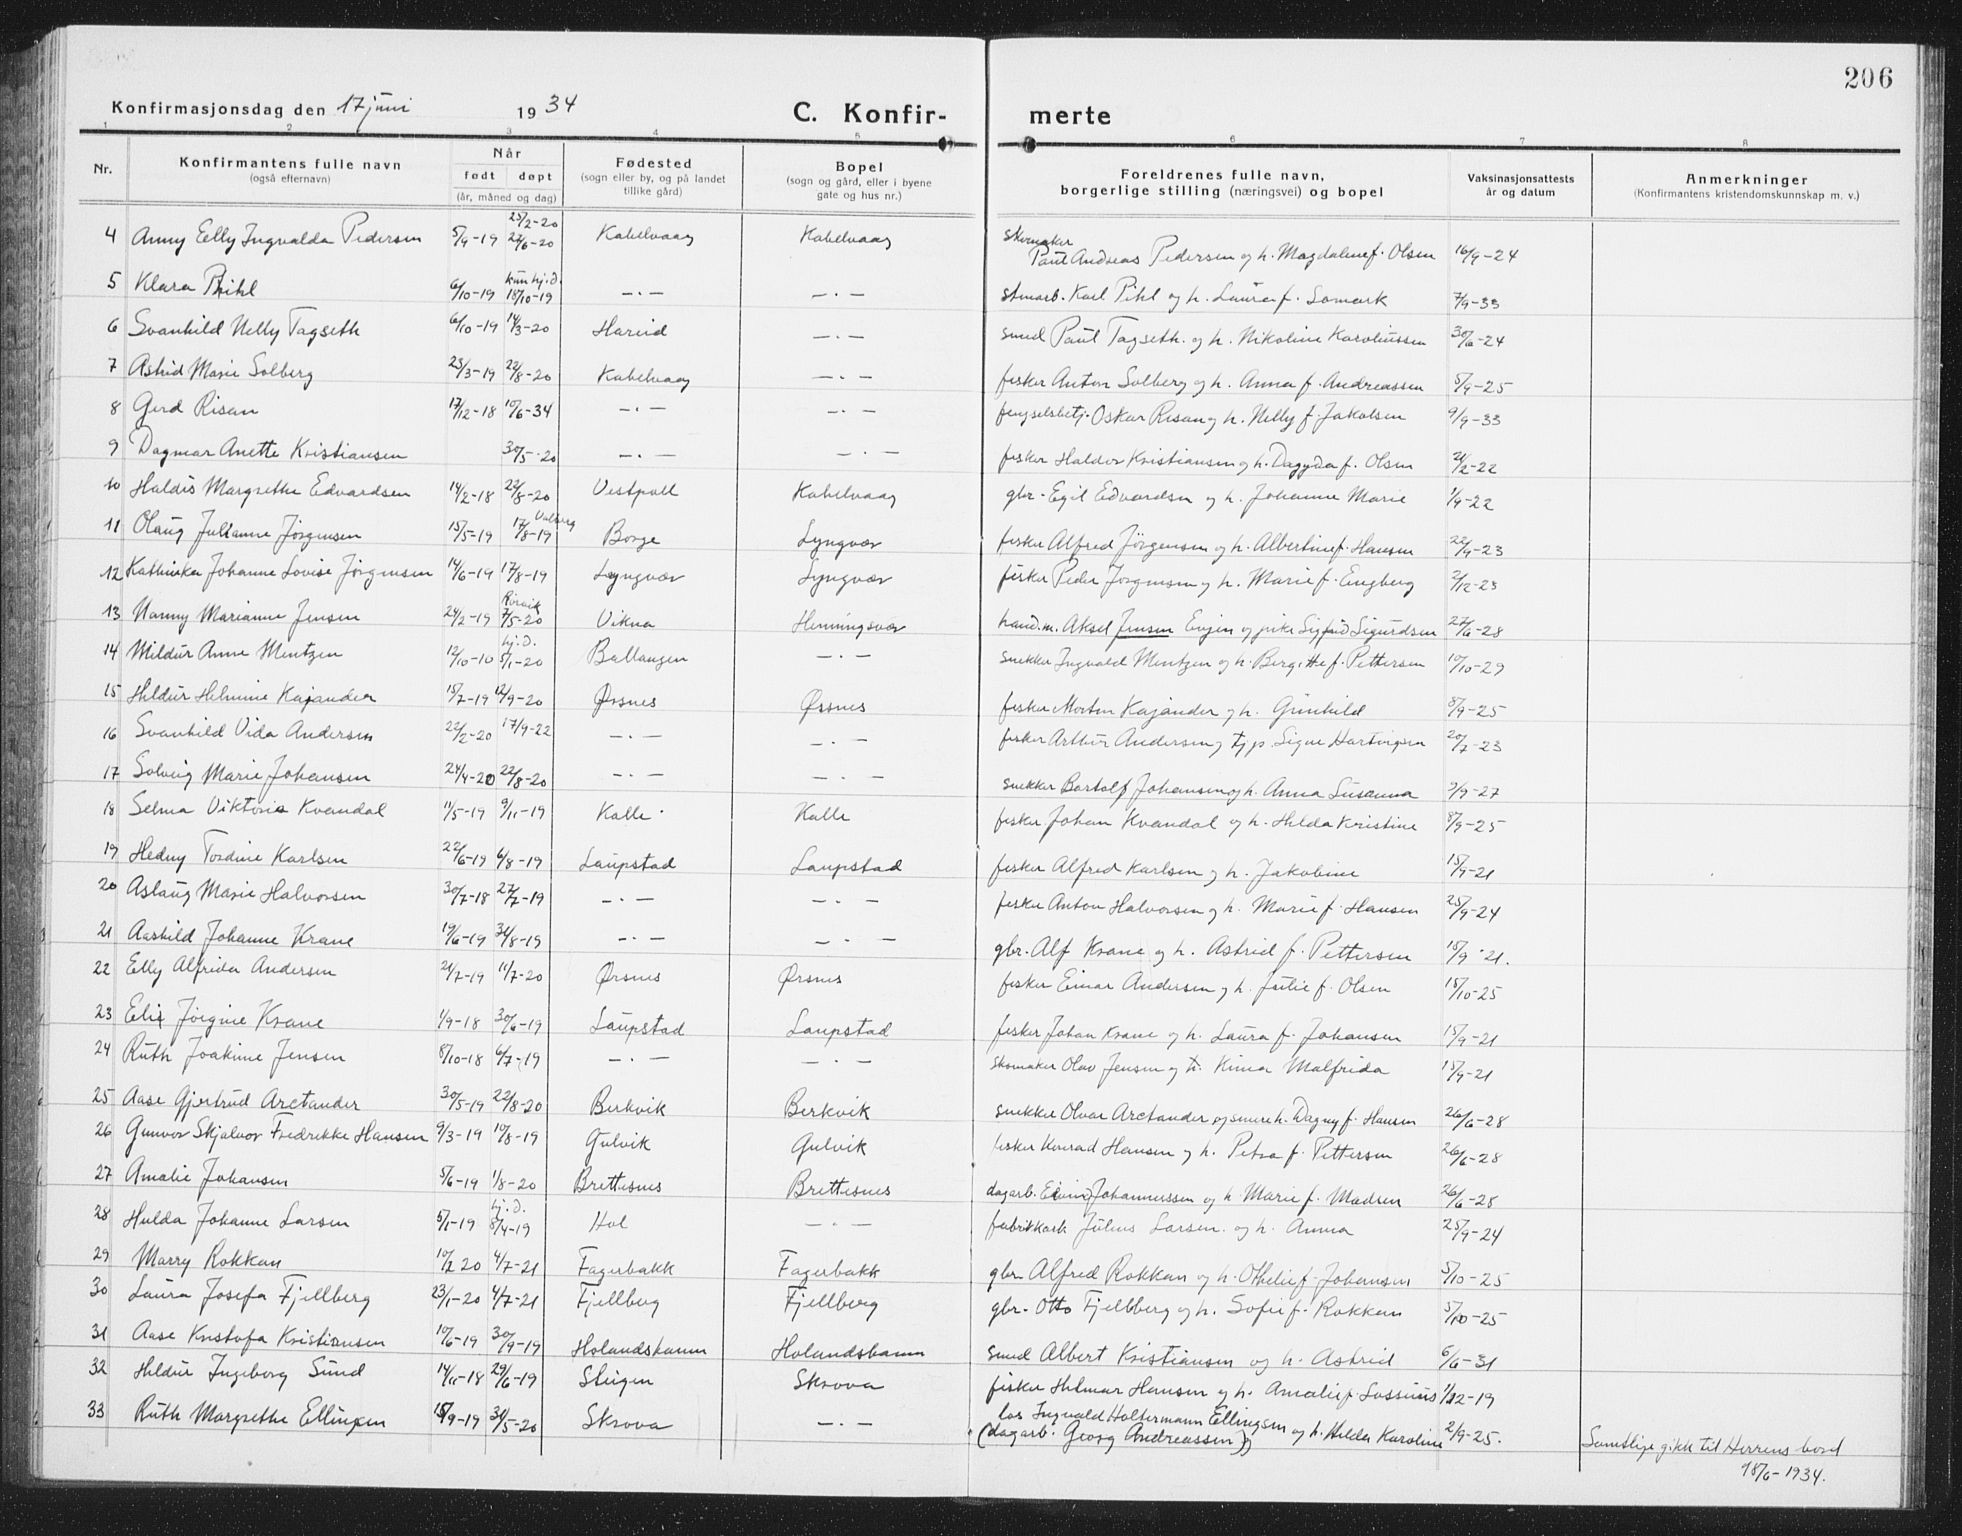 206
Konfirmasjonsdag den 17 juni 1934 C. Konfir- merte
1 2 3 4 5 6 7 8
Nr. Konfirmantens fulle navn (også efternavn) Når født døpt (år, måned og dag) Fødested (sogn eller by, og på landet tillike gård) Bopel (sogn og gård, eller i byene gate og hus nr.) Foreldrenes fulle navn, borgerlige stilling (næringsvei) og bopel Vaksinasjonsattests år og datum Anmerkninger (Konfirmantens kristendomskunnskap m. v.)
4 Anny Elly Ingvalda Pedersen 5/9-19 25/2-20 27/6-20 Kabelvaag Kabelvaag skomaker Paul Andreas Pedersen og h. Magdalene f. Olsen 16/9-24
5 Klara Pihl 6/10-19 kun hj.d. 18/10-19 — . — — . — Karl Pihl og h. Laura f. Lomark 7/9-33
6 Svanhild Nelly Tagseth 6/10-19 14/3-20 Hareid — . — smed Paul Tagseth og h. Nikoline Karoliussen 30/6-24
7 Astrid Marie Solberg 23/3-19 22/8-20 Kabelvaag — . — fisker Anton Solberg og h. Anna f. Andreassen 5/9-25
8 Gerd Risan 17/12-18 10/6-34 — . — — . — fengselsbetj. Oskar Risan og h. Nelly f. Jakobsen 9/9-33
9 Dagmar Anette Kristiansen 30/5-20 — . — — . — fisker Haldor Kristiansen og h. Dagyda f. Olsen 21/2-22
10 Haldis Margrethe Edvardsen 14/2-18 22/8-20 Vestpoll Kabelvaag gbr. Egil Edvardsen og h. Johanne Marie 1/9-22
11 Olaug Julianne Jørgensen 15/5-19 Valberg 17/8-19 Borge Lyngvær fisker Alfred Jørgensen og h. Albertine f. Hansen 22/9-23
12 Kathinka Johanne Lovise Jørgensen 14/6-19 17/8-19 Lyngvær Lyngvær fisker Peder Jørgensen og h. Marie f. Engberg 2/12-23
13 Nanny Marianne Jensen 24/2-19 Rørvik 7/5-20 Vikna Henningsvær hand.m. Aksel Jensen Evjen og pike Sigfrid Sigurdsen 27/6-28
14 Mildur Anne Mentzen 12/10-10 hj.d. 5/1-20 Ballangen — . — snekker Ingvald Mentzen og h. Bergitte f. Pettersen 10/10-29
15 Hildur Helmine Kajander 15/7-19 12/9-20 Ørsnes Ørsnes fisker Morten Kajander og h. Gunhild 8/9-25
16 Svanhild Vida Andersen 22/2-20 17/9-22 — . — — . — fisker Arthur Andersen og tjp. Signe Hartvigsen 20/7-23
17 Solveig Marie Johansen 24/4-20 22/8-20 — . — — . — snekker Bartolf Johansen og h. Anna Susanna 9/9-27
18 Selma Viktoria Kvandal 11/5-19 9/11-19 Kalle Kalle fisker Johan Kvandal og h. Hilda Kristine 8/9-25
19 Hedny Tordine Karlsen 22/6-19 6/8-19 Laupstad Laupstad fisker Alfred Karlsen og h. Jakobine 15/9-21
20 Aslaug Marie Halvorsen 30/7-18 27/7-19 — . — — . — fisker Anton Halvorsen og h. Marie f. Hansen 25/9-24
21 Aashild Johanne Krane 19/6-19 31/8-19 — . — — . — gbr. Alf Krane og h. Astrid f. Pettersen 15/9-21.
22 Elly Alfrida Andersen 21/7-19 11/7-20 Ørsnes Ørsnes fisker Einar Andersen og h. Julie f. Olsen 15/10-25
23 Eli Jørgine Krane 1/9-18 30/6-19 Laupstad Laupstad fisker Johan Krane og h. Laura f. Johansen 15/9-21
24 Ruth Joakime Jensen 8/10-18 6/7-19 — . — — . — skomaker Olav Jensen og h. Kima Malfrida 15/9-21
25 Aase Gjertrud Arctander 30/5-19 22/8-20 Berkvik Berkvik snekker Olvar Arctander og h. Dagny f. Hansen 26/6-28
26 Gunvor Skjalvor Fredrikke Hansen 9/3-19 10/8-19 Gulvik Gulvik fisker Konrad Hansen og h. Petra f. Pettersen 26/6-28
27 Amalie Johansen 5/6-19 1/8-20 Brettesnes Brettesnes dagarb. Johannessen og h. Marie f. Madsen 26/6-28
28 Hulda Johanne Larsen 5/1-19 hj.d. 8/4-19 Hol — . — fabrikkarb Julius Larsen og h. Anna 25/9-24
29 Marry Rokkan 10/2 20 4/7-21 Fagerbakk Fagerbakk gbr Alfred Rokkan og h. Othelie f. Johansen 5/10-25
30 Laura Josefa Fjellberg 23/1-20 4/7-21 Fjellberg Fjellberg gbr. Otto Fjellberg og h. Sofie f. Rokkan 5/10-25
31 Aase Kristofa Kristiansen 10/6-19 30/9-19 Holandshamn Holandshamn smed Albert Kristiansen og h. Astrid 6/6-31
32 Hildur Ingeborg Sund 14/11-18 29/6-19 Steigen Skrova fisker Helmar Hansen og h. Amalie f. Lossius 1/12-19
33 Ruth Margrethe Ellingsen 15/9-19 31/5-20 Skrova — . — los Ingvald Holtermann Ellingsen og h. Hilda Karoline 2/9-25.
(dagarb. Georg Andreassen)
Samtlige gikk til Herrens bord
18/6-1934.